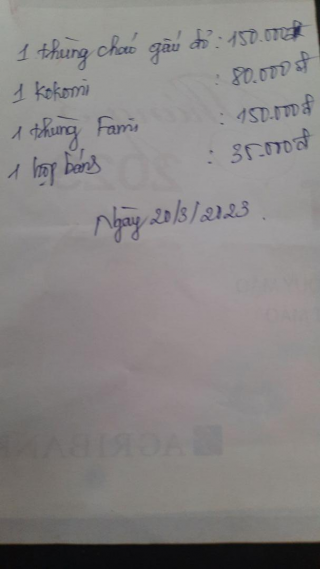 1 thùng cháo gấu đỏ : 150.000đ
1 Kokomi : 80.000đ
1 thùng Fami : 150.000đ
1 hộp bánh : 35.000đ
Ngày 20/3/2023.
AGRIBANK